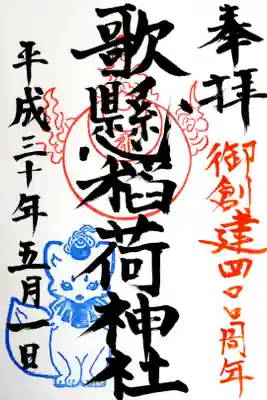 奉拝
御創建四〇〇周年
歌懸稲荷神社
平成三十年五月一日